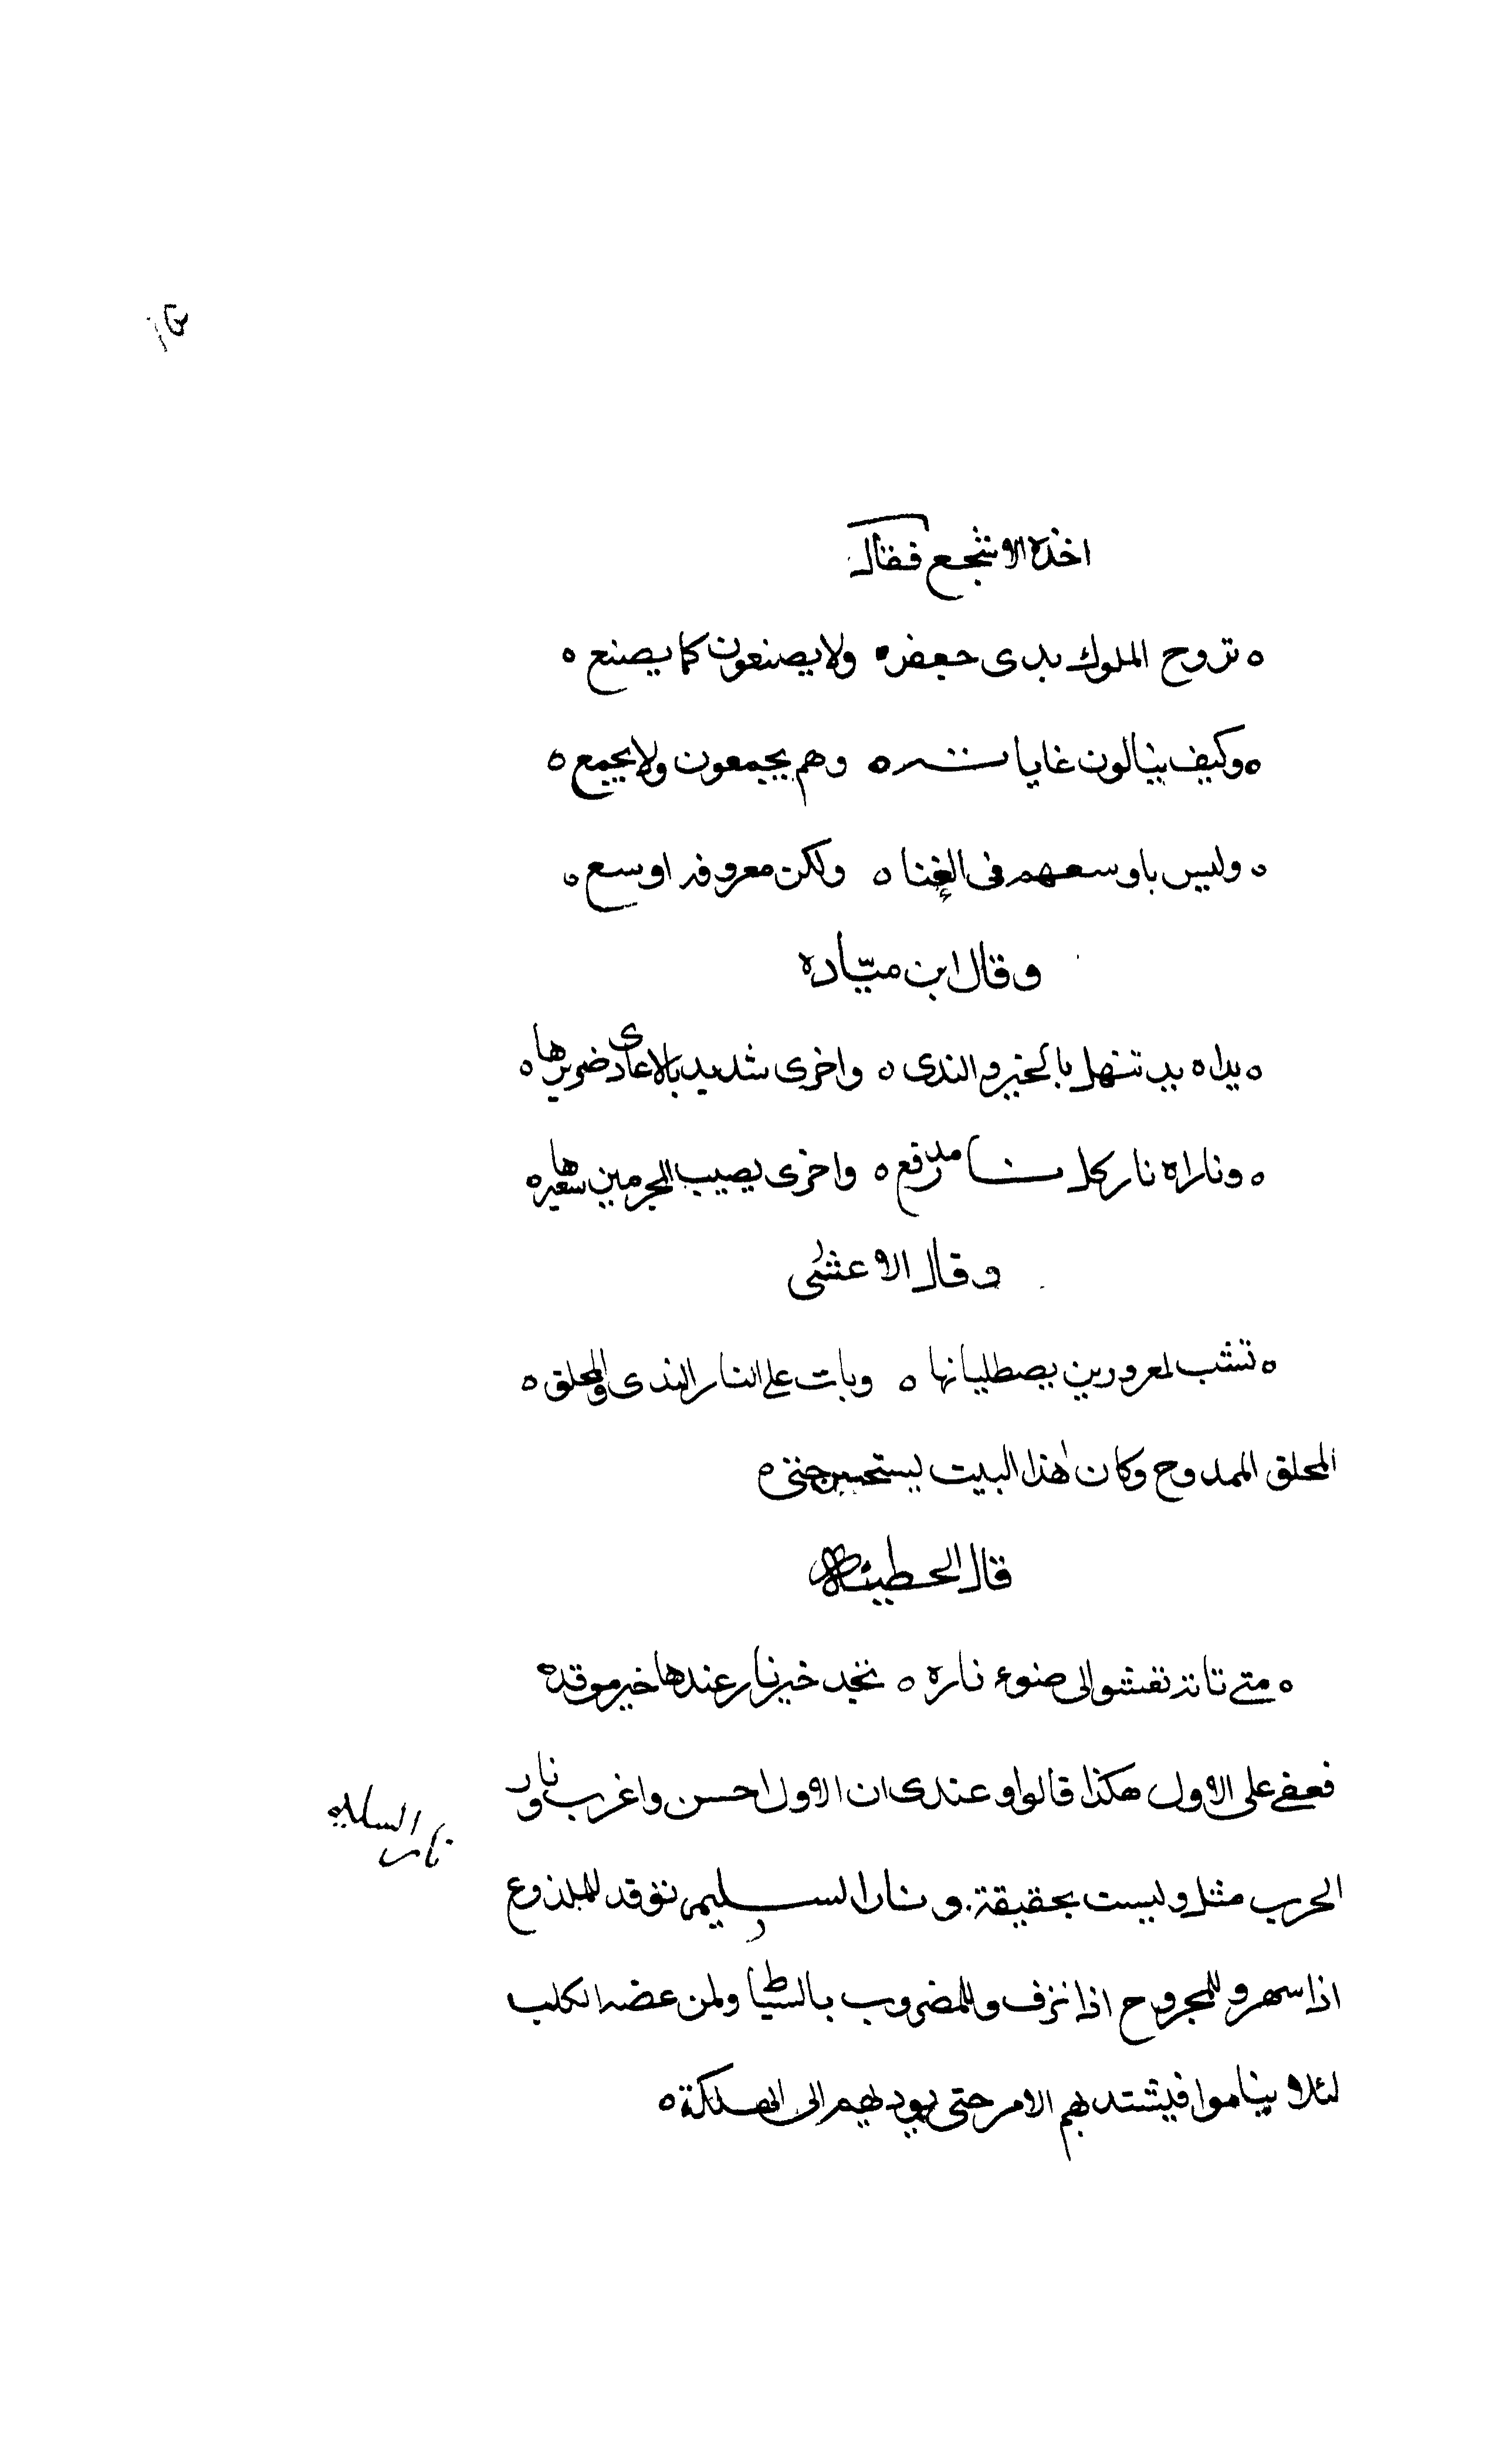 اخذه الاشجع فقال
ه تروح الملوك بدى جعفره ولا يصنعون كما يصنع ه
ه وكيف ينالون غاياتـــه ه وهم يجمعون ولا يجمع ه
ه وليس باوسعهم فى الغنا ه ولكن معروفه اوسع ه
وقال ابن ميّاده
ه يداه يد تنهل بالخير والندى ه واخرى شديد بالاعادى ضريرها ه
ه وناراه نار كل مدفع ه واخرى يصيب المجرمين سعيرها ه
وقال الاعشى
ه تشب لمقرورين يصطليانها ه وبات على النار الندى والمحلق ه
المحلق الممدوح وكان هذا البيت يستحسن حتى ه
قال الحطيئة
ه متى تاته تعشو الى ضوء ناره ه تجد خير نار عندها خير موقد ه
فعفى على الاول هكذا قالوا وعندى ان الاول احسن واغرب ونار
نار السليم
الحرب مثل وليست بحقيقة. ونار السليم توقد للملذوع
اذا سهر وللمجروح اذا نزف وللمضروب بالسياط ولمن عضه الكلب
لئلا يناموا فيشتد بهم الامر حتى يوديهم الى الهلكة ه